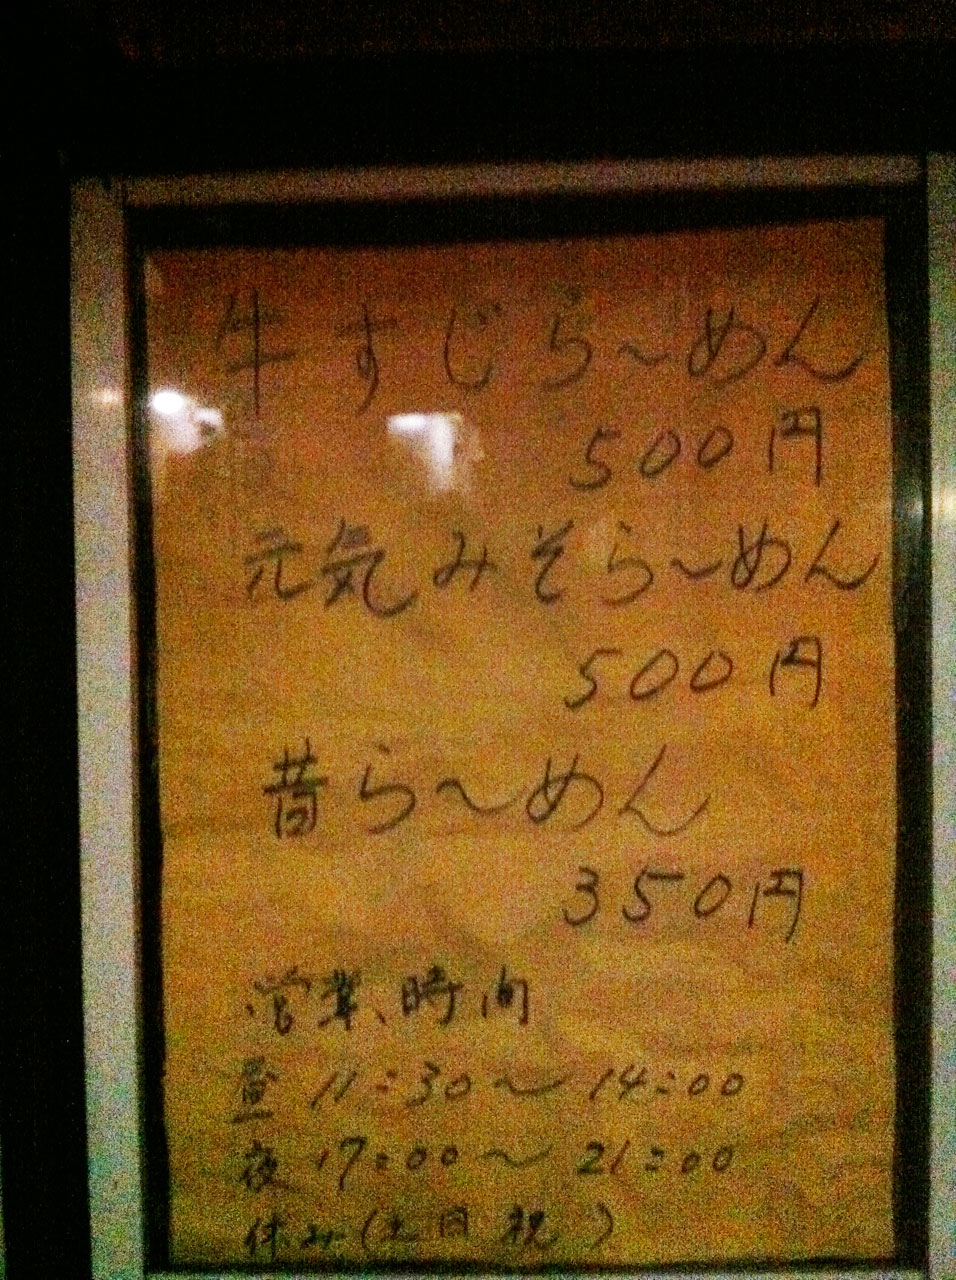 牛すじら〜めん
500円
元気みそら〜めん
500円
昔ら〜めん
350円
営業時間
昼 11:30〜14:00
夜 17:00〜21:00
休み(土日祝)